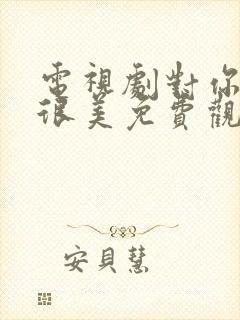 電視劇對你
很美免費觀
安貝慧